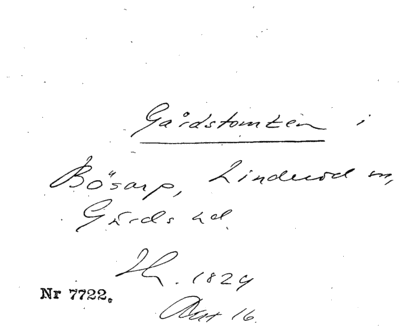 Gårdstomten i
Bösarp, Linderöd sn,
Gärds hd.
1829
Nr 7722.
16